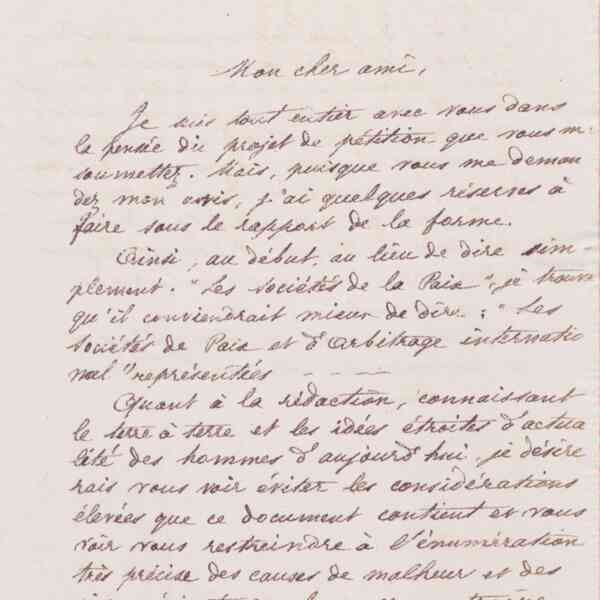 Mon cher ami,
Je suis tout entier avec vous dans
la pensée du projet de pétition que vous m
soumettez. Mais, puisque vous me deman
dez mon avis, j'ai quelques réserves à
faire sous le rapport de la forme.
Ainsi, au début, au lieu de dire sim-
plement. "Les sociétés de la Paix", je trouve
qu'il conviendrait mieux de dire : "Les
sociétés de Paix et d'Arbitrage internatio
nal" représentées - - - -
Quant à la rédaction, connaissant
le terre à terre et les idées étroites d'actua
lité des hommes d'aujourd'hui, je désire
rais vous voir éviter les considérations
élevées que ce document contient et vous
voir vous restreindre à l'énumération
très précise des causes de malheur et des